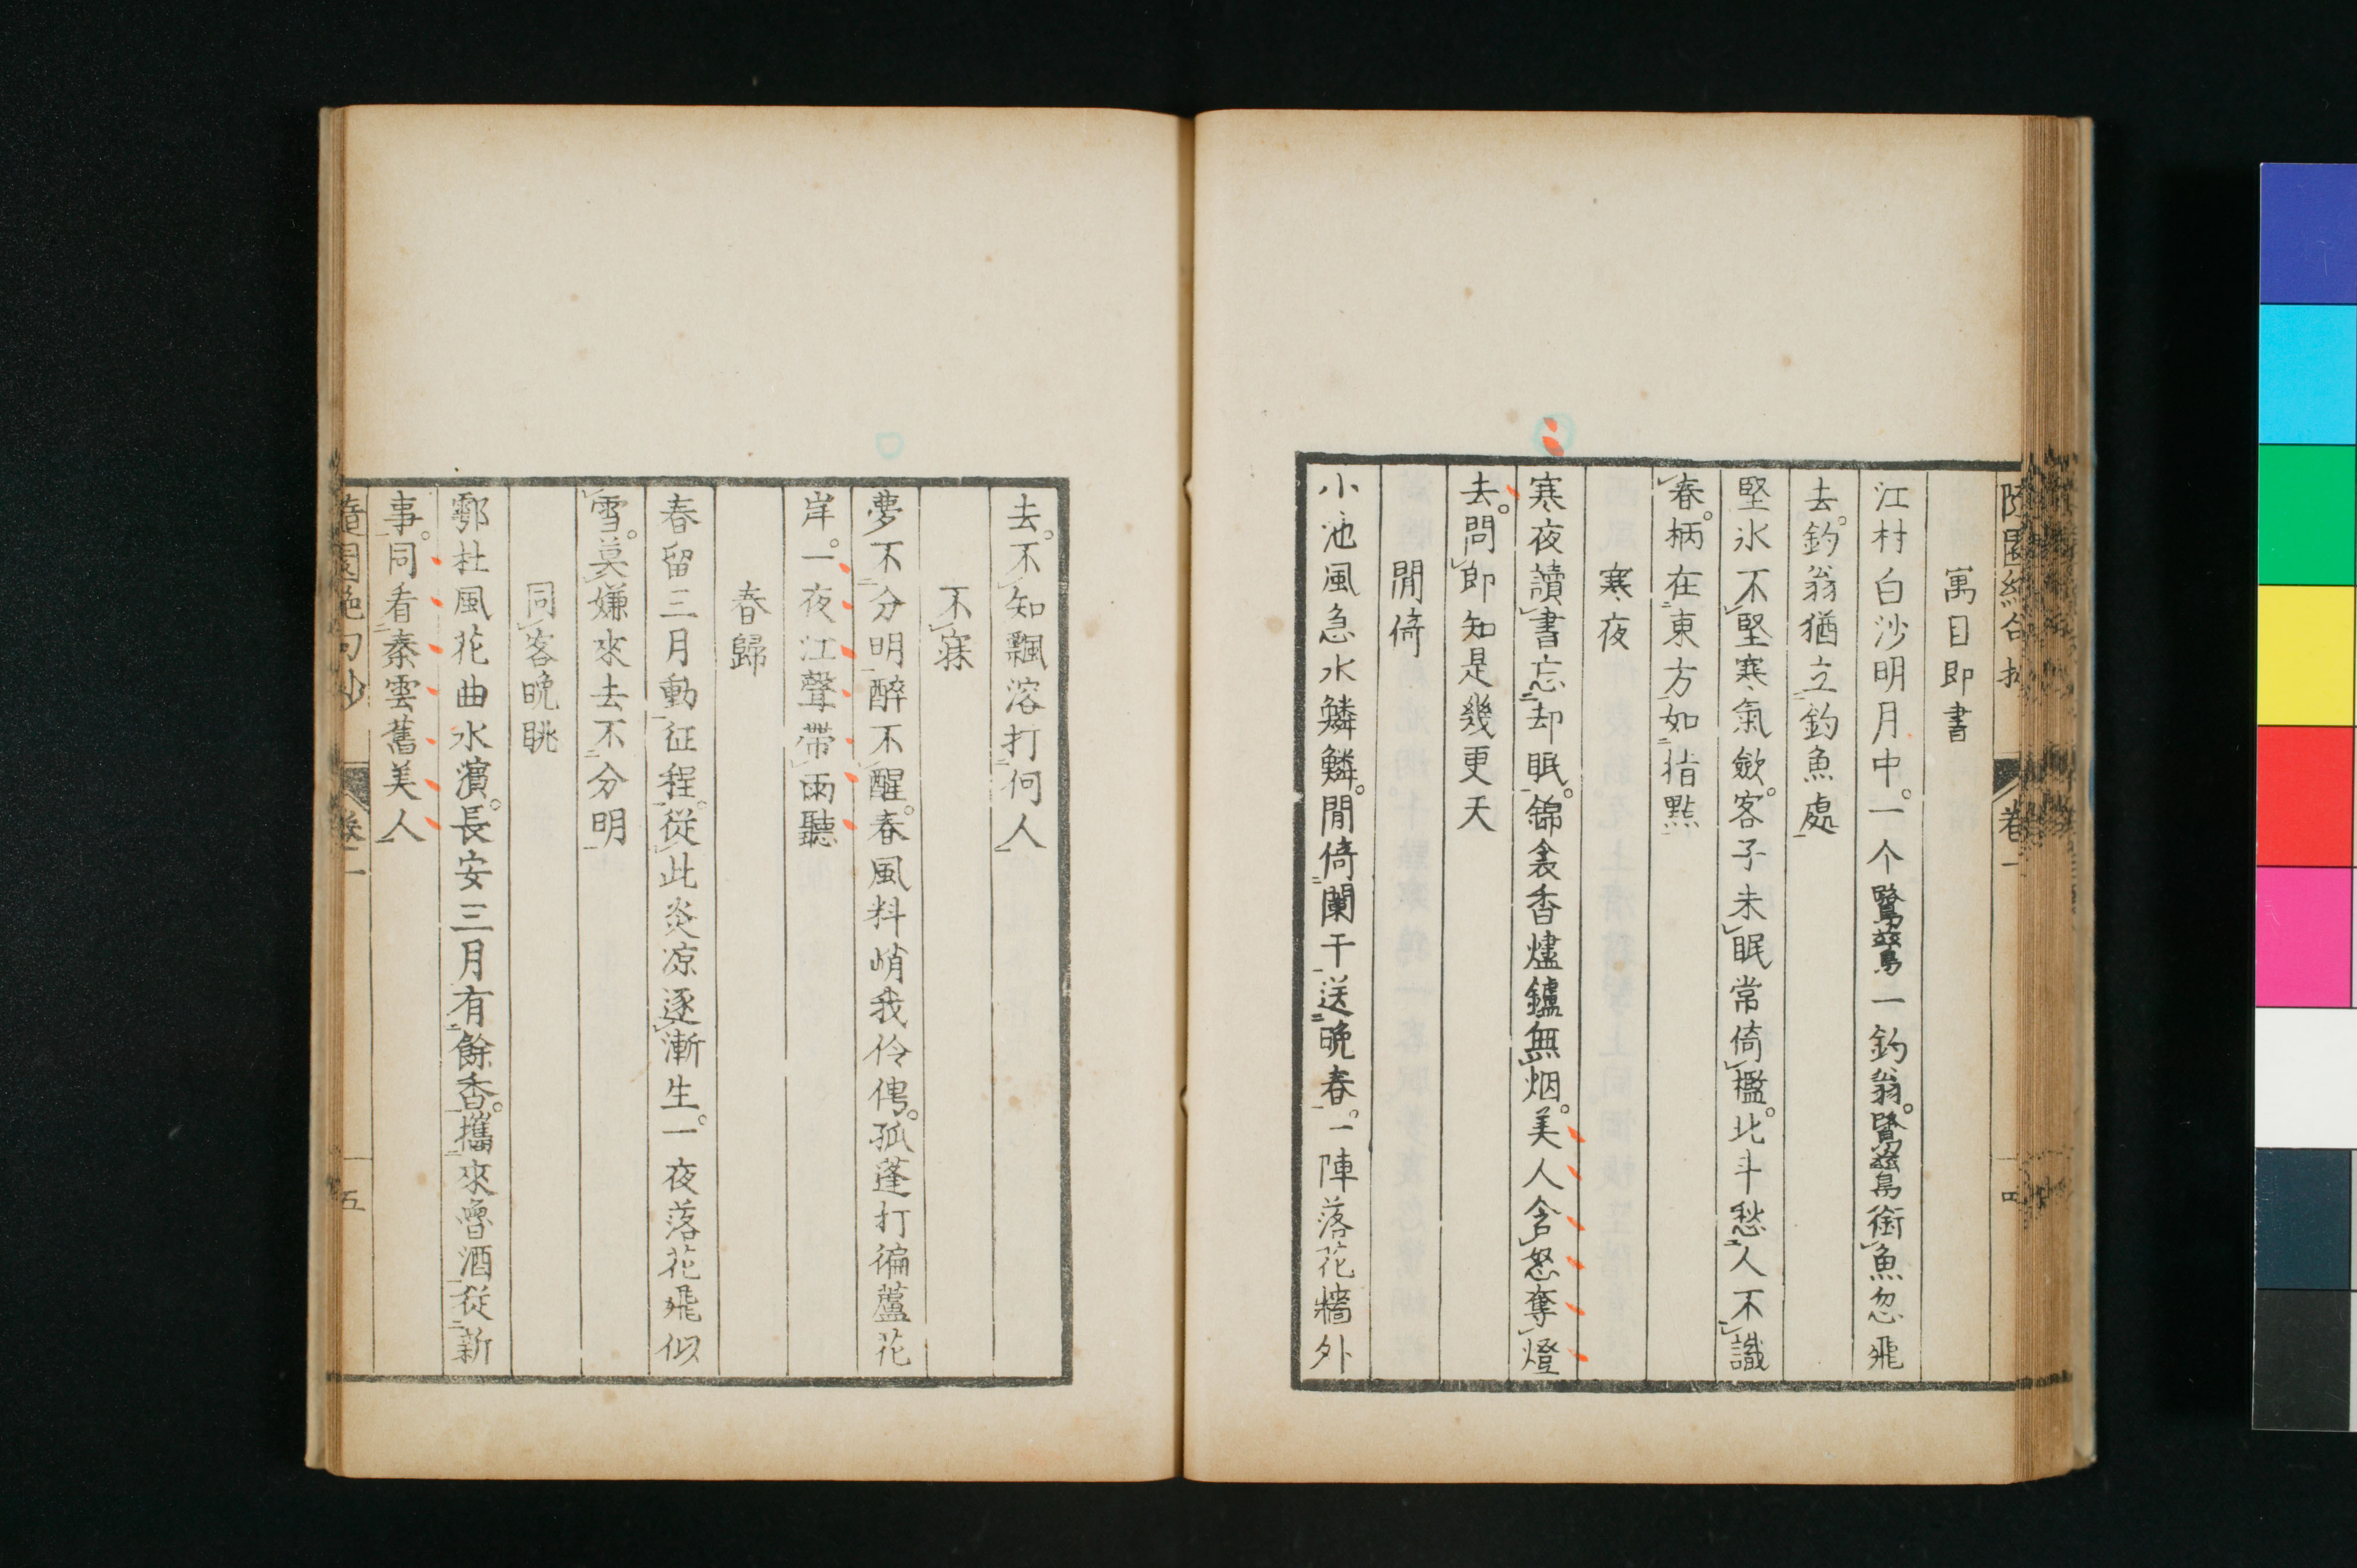 隨園絶句抄 卷一 四
寓目即書
江村白沙明月中。一个鷺鷥一釣翁。鷺鷥銜魚忽飛
去。釣翁猶立釣魚處
堅氷不堅寒氣歛。客子未眠常倚檻。北斗愁人不識
春。柄在東方如指點
寒夜
寒夜讀書忘却眠。錦衾香燼鑪無烟。美人含怒奪燈
去。問郎知是幾更天
閒倚
小池風急水鱗鱗。閒倚闌干送晚春。一陣落花牆外
去。不知飄溶打何人
不寐
夢不分明醉不醒。春風料峭我伶俜。孤蓬打徧蘆花
岸。一夜江聲帶雨聽
春歸
春留三月動征程。從此炎凉逐漸生。一夜落花飛似
雪。莫嫌來去不分明
同客晚眺
鄠杜風花曲水濱。長安三月有餘香。攜來魯酒從新
事。同看秦雲舊美人
隨園絶句抄 卷一 五